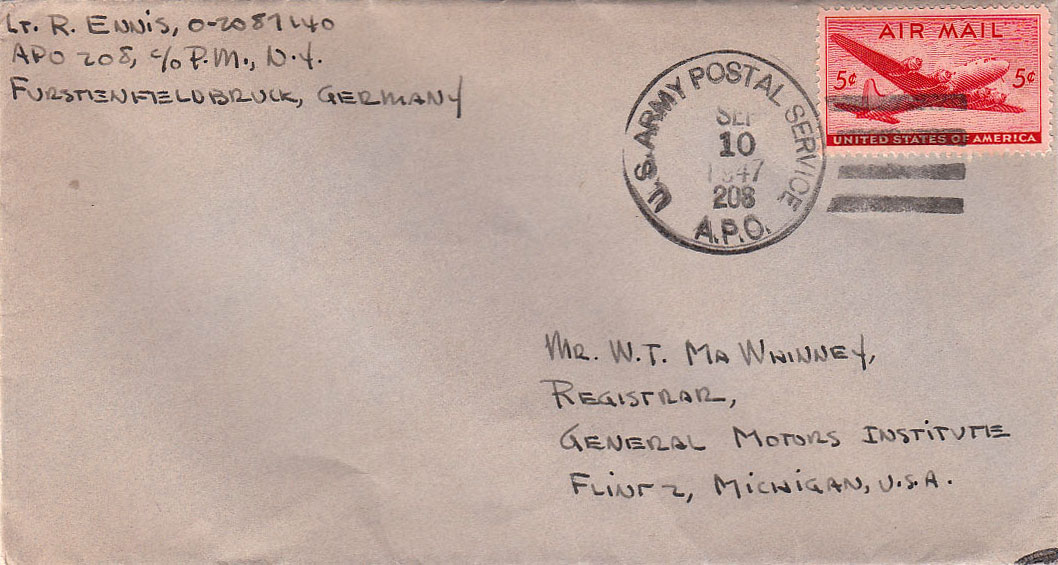 Lt. R. Ennis, O-2087140
APO 208, c/o P.M., N.Y.
Furstenfieldbruck, Germany
AIR MAIL
5¢ 5¢
UNITED STATES OF AMERICA
U.S. ARMY POSTAL SERVICE
SEP
10
1947
208
A.P.O.
Mr. W.T. MaWhinney,
Registrar,
General Motors Institute
Flint 2, Michigan, U.S.A.